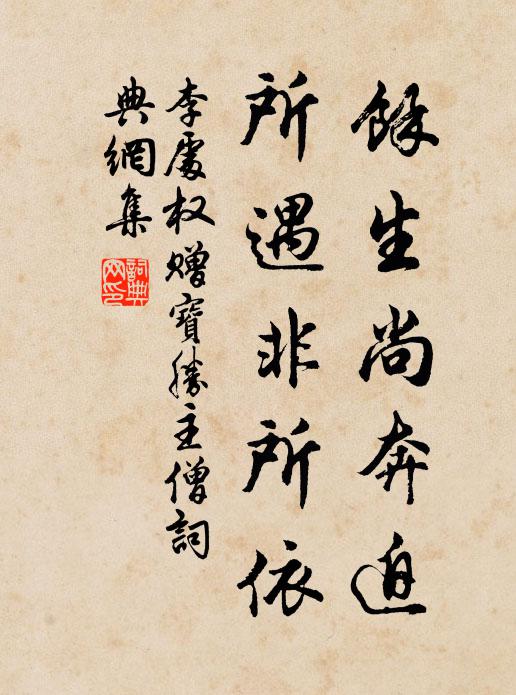 餘生尚奔迫
所遇非所依
李處权贈寶勝主僧詞
典網集
詞典
网印